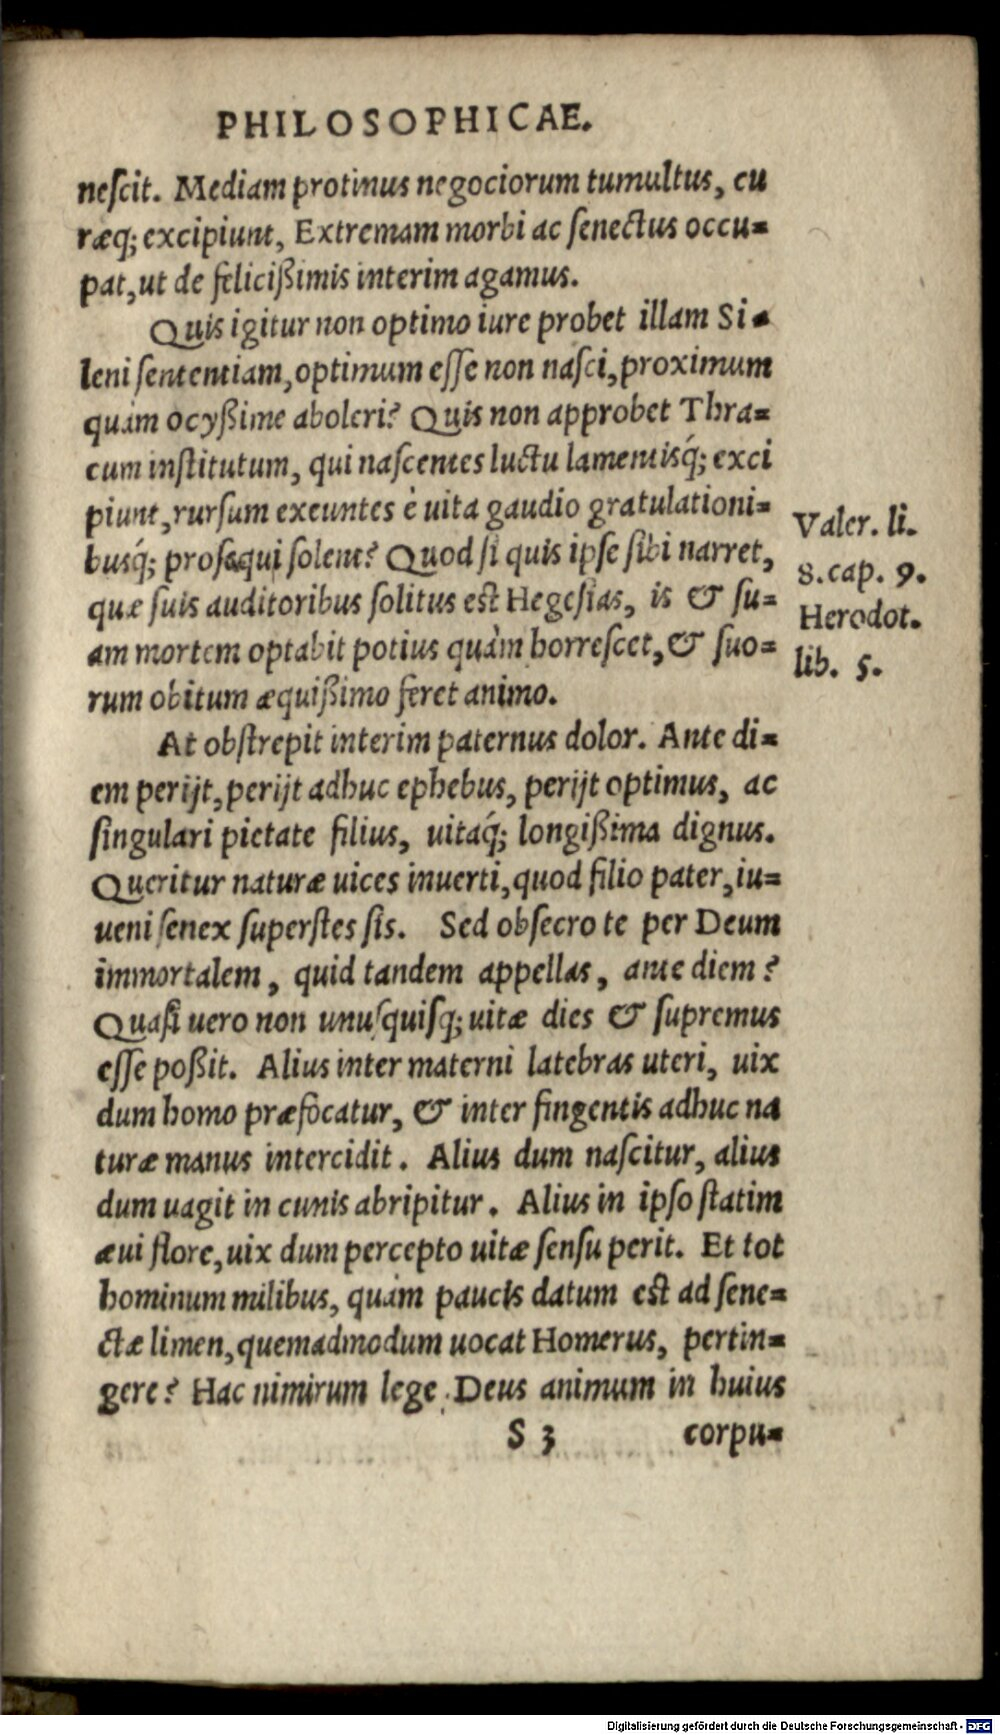 PHILOSOPHICAE.
neſcit. Mediam protinus negociorum tumultus, cu
ræq́; excipiunt, Extremam morbi ac ſenectus occu-
pat, ut de feliciſsimis interim agamus.
Quis igitur non optimo iure probet illam Si-
leni ſententiam, optimum eſſe non naſci, proximum
quàm ocyßime aboleri? Quis non approbet Thra-
cum inſtitutum, qui naſcentes luctu lamentisq́; exci
piunt, rurſum exeuntes è uita gaudio gratulationi-
busq́; proſequi ſolent? Quod ſi quis ipſe ſibi narret,
quæ ſuis auditoribus ſolitus eſt Hegeſias, is & ſu-
am mortem optabit potius quàm horreſcet, & ſuo-
rum obitum æquißimo feret animo.
Valer. li.
8. cap. 9.
Herodot.
lib. 5.
At obſtrepit interim paternus dolor. Ante di-
em perijt, perijt adhuc ephebus, perijt optimus, ac
ſingulari pietate filius, uitaq́; longißima dignus.
Queritur naturæ uices inuerti, quod filio pater, iu-
ueni ſenex ſuperſtes ſis. Sed obſecro te per Deum
immortalem, quid tandem appellas, ante diem?
Quaſi uero non unuſquiſq; uitæ dies & ſupremus
eſſe poßit. Alius inter materni latebras uteri, uix
dum homo præfocatur, & inter fingentis adhuc na
turæ manus intercidit. Alius dum naſcitur, alius
dum uagit in cunis abripitur. Alius in ipſo ſtatim
æui flore, uix dum percepto uitæ ſenſu perit. Et tot
hominum milibus, quàm paucis datum eſt ad ſene-
ctæ limen, quemadmodum uocat Homerus, pertin-
gere? Hac nimirum lege Deus animum in huius
S 3 corpu-
Digitalisierung gefördert durch die Deutsche Forschungsgemeinschaft - DFG